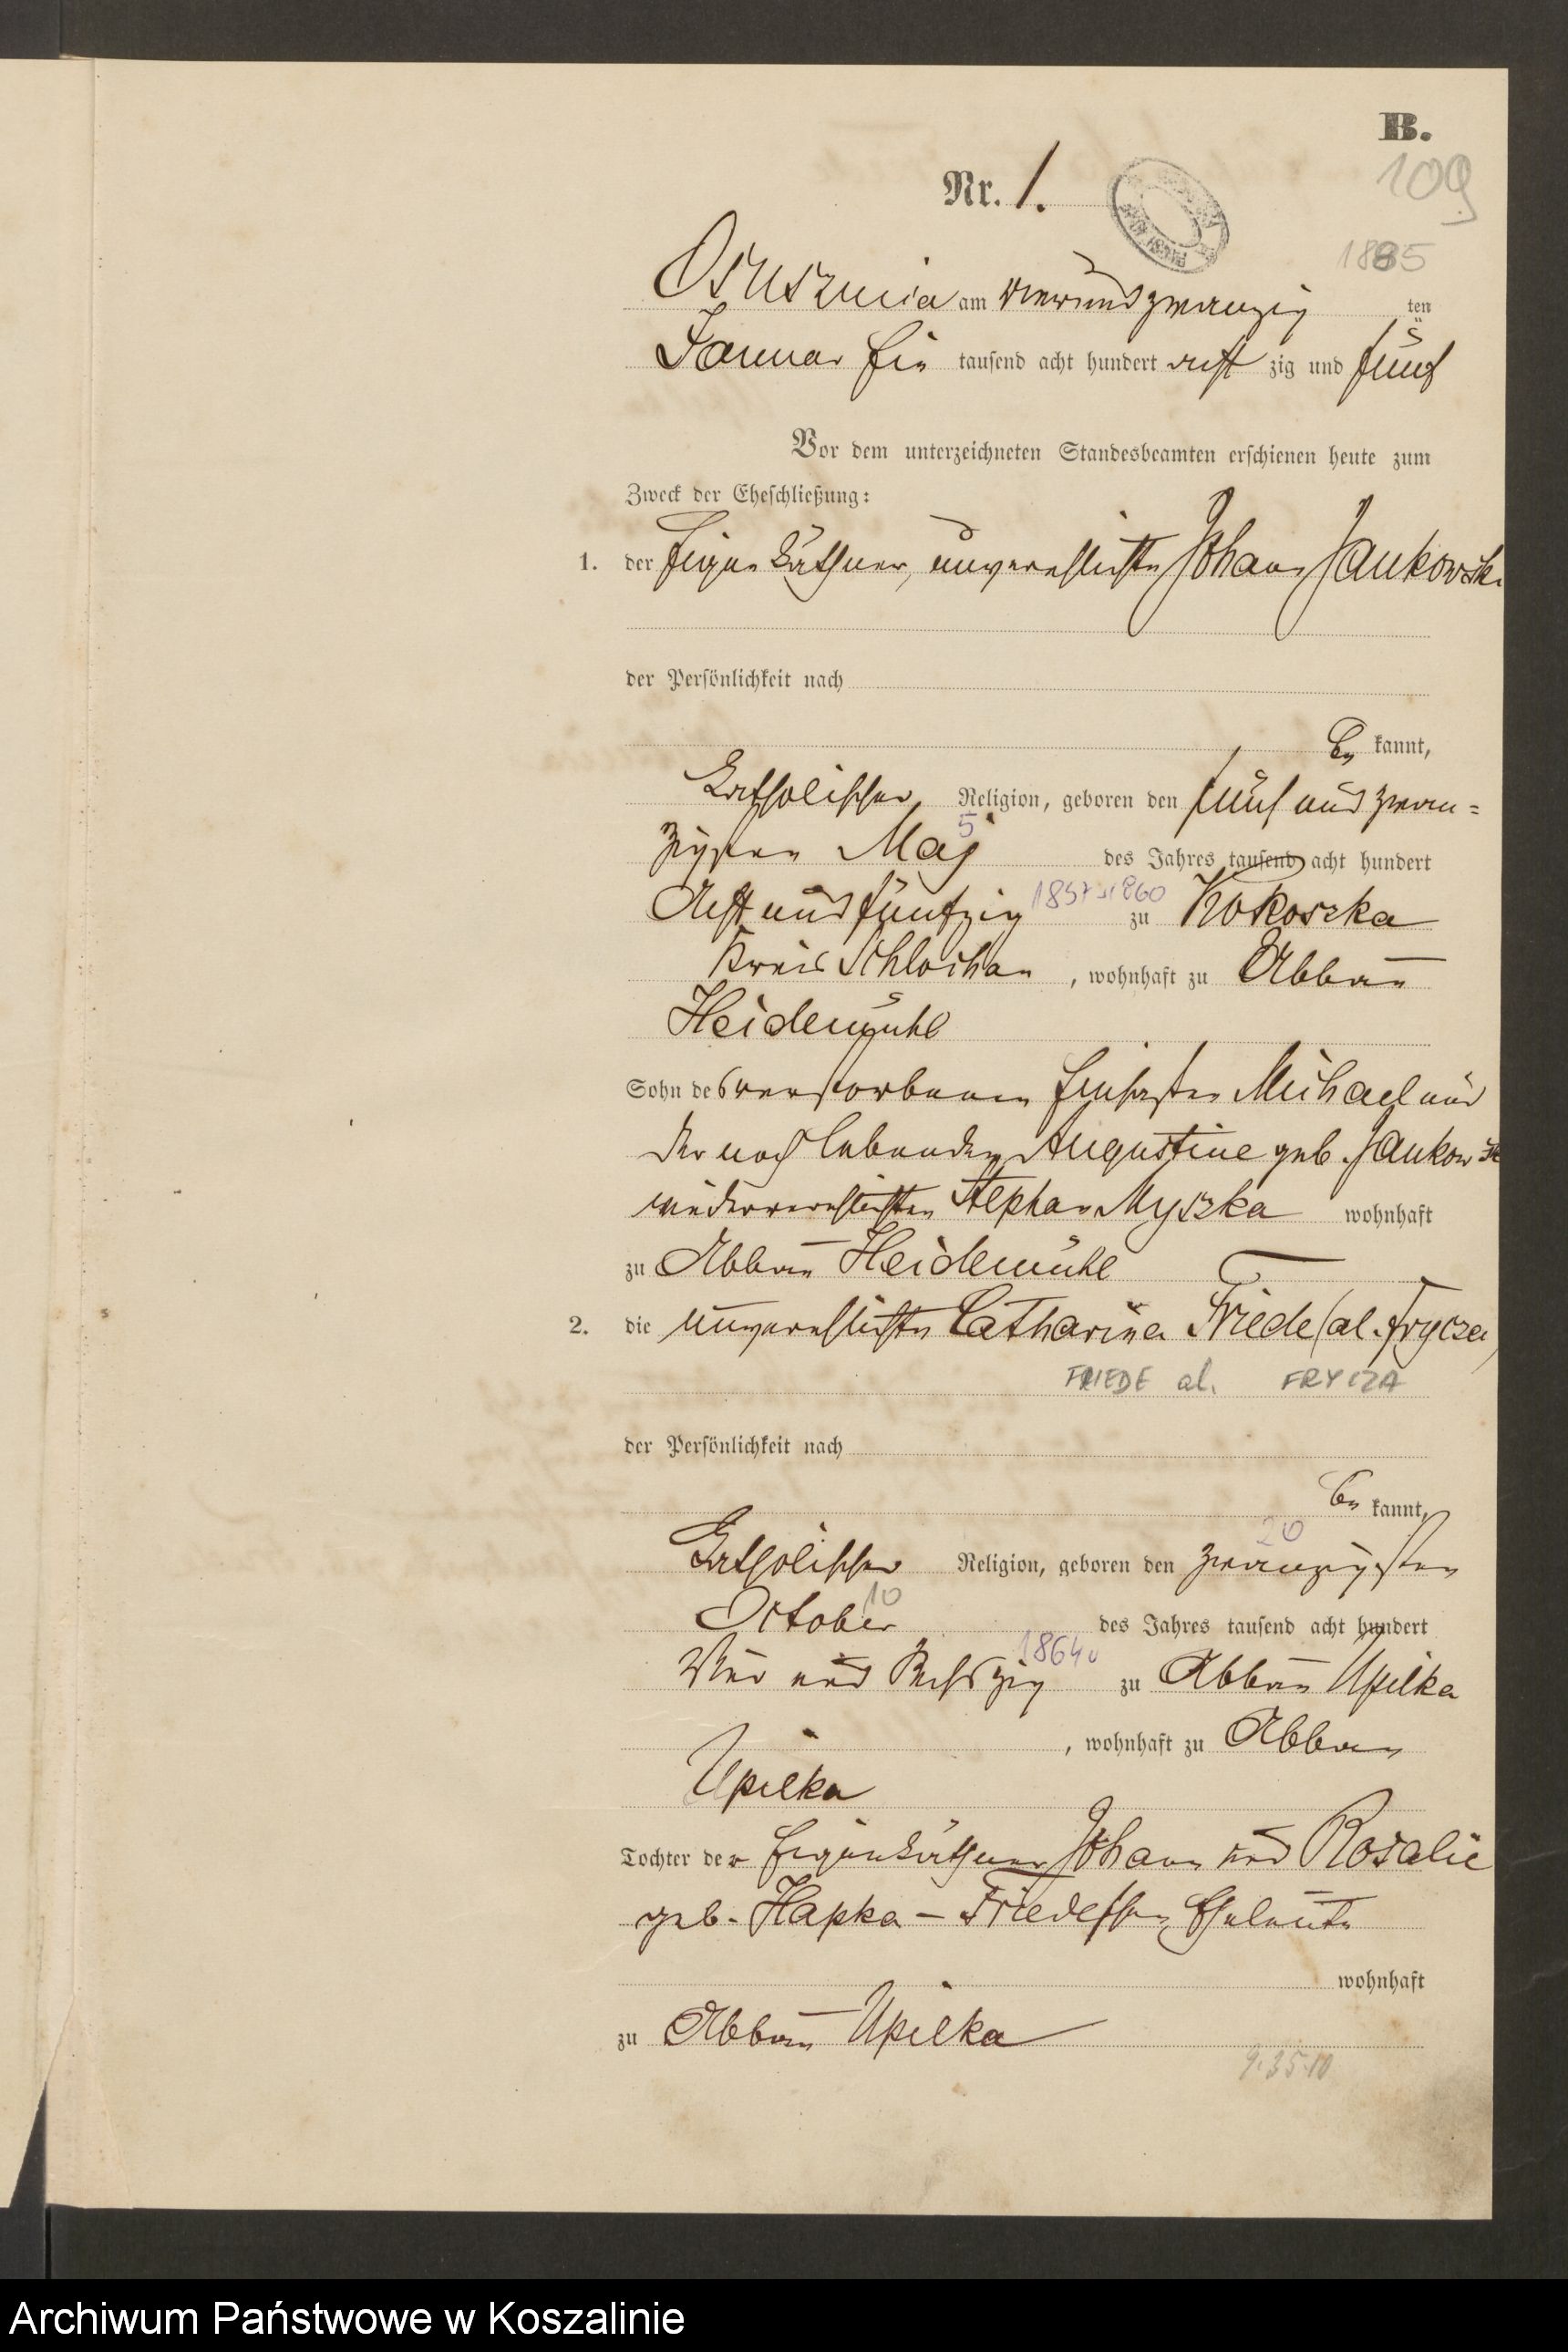 B.
109
Nr. 1.
1885
Osusznica am vierundzwanzig ten
Januar Ein tausend acht hundert acht zig und fünf
Vor dem unterzeichneten Standesbeamten erschienen heute zum
Zweck der Eheschließung:
1. der Eigenkäthner, unverehlichte Johann Jankowski
der Persönlichkeit nach
be kannt,
Katholischer Religion, geboren den fünf und zwan=
zigsten Maj 5 des Jahres tausend acht hundert
Acht und fünfzig 1857 1860 zu Kokoszka
Kreis Schlochau, wohnhaft zu Abbau
Heidemühl
Sohn des verstorbenen Michael und
der noch lebenden Augustine geb. Jankowsk
wiederverehlichten Stephan Myszka wohnhaft
zu Abbau Heidemühl
2. die unverehlichte Catharina Friede (al. Frycza)
FRIEDE al. FRYCZA
der Persönlichkeit nach
be kannt,
20
Katholischer Religion, geboren den zwanzigsten
October 10 des Jahres tausend acht hundert
Vier und Sechszig 1864 zu Abbau Upilka
, wohnhaft zu Abbau
Upilka
Tochter der Eigenkäthner Johann und Rosalie
geb. Hapka – Friedeschen Eheleute
wohnhaft
zu Abbau Upilka
9.35.10
Archiwum Państwowe w Koszalinie